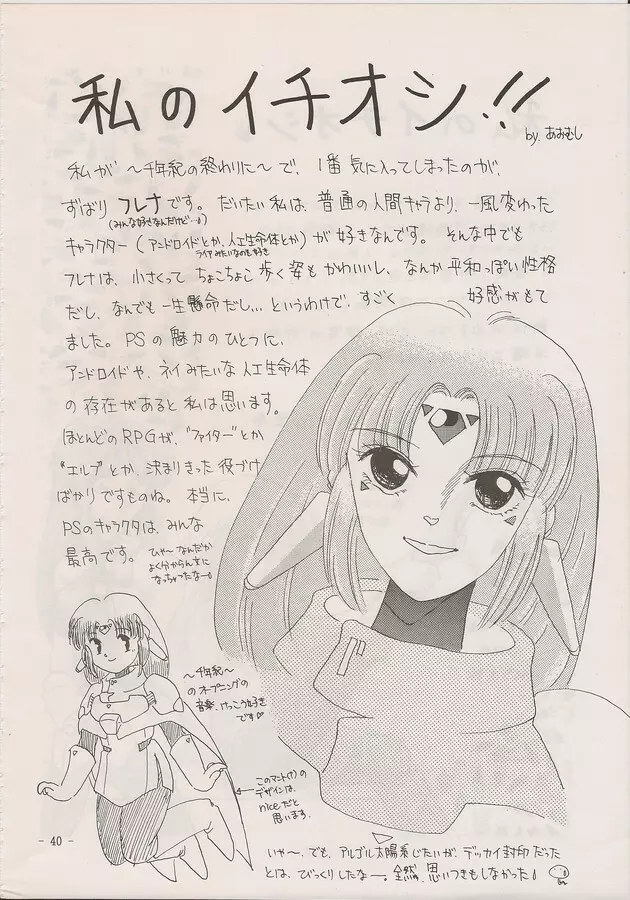 私のイチオシ!!
by. あおむし
私が 〜千年紀の終わりに〜 で、1番気に入ってしまったのが、
ずばり フレナ です。だいたい私は、普通の人間キャラより、一風変わった
(みんな好きなんだけど…♪)
キャラクター(アンドロイドとか、人工生命体とか)が 好きなんです。そんな中でも
ライアみたいなのも好き
フレナは、小さくって ちょこちょこ 歩く 姿も かわいいし、なんか 平和っぽい性格
だし、なんでも一生懸命だし… というわけで、すごく 好感がもて
ました。PSの魅力のひとつに、
アンドロイドや、ネイみたいな人工生命体
の存在があると私は思います。
ほとんどのRPGが、"ファイター"とか
"エルフ"とか、決まりきった役づけ
ばかりですものね。本当に、
PSのキャラクタは、みんな
最高です。
ひゃ〜なんだか
よく分からん文に
なっちゃったなー♪
〜千年紀〜
のオープニングの
音楽、けっこう好き
です♡
このマント(?)の
デザインは、
niceだと
思います。
いゃ〜、でも、アルゴル太陽系じたいが、デッカイ封印だった
とは、びっくりしたなー。全然、思いつきもしなかった♪
- 40 -